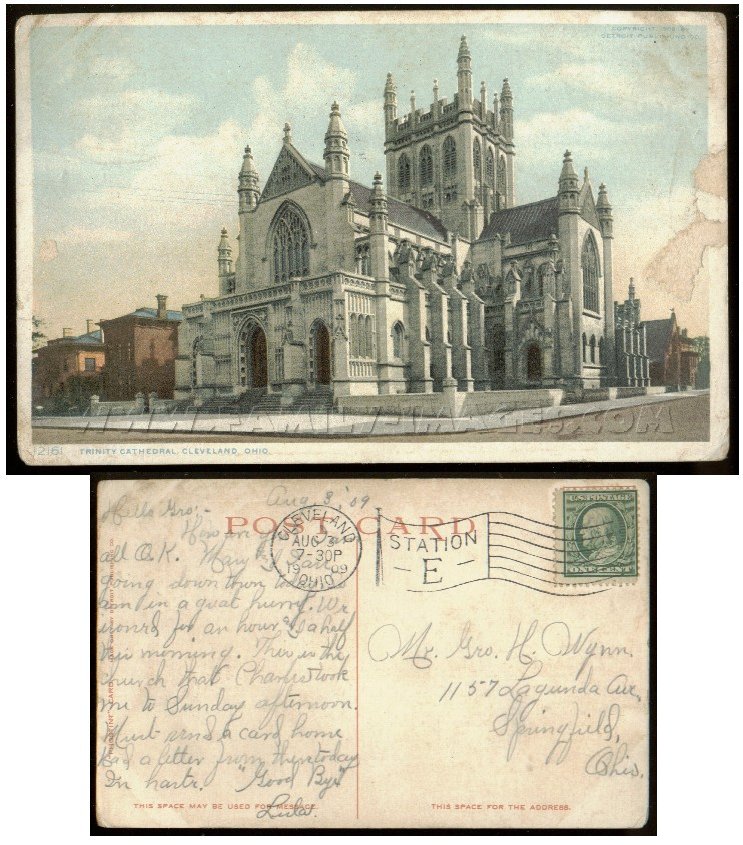 COPYRIGHT, 1908, BY
DETROIT PUBLISHING CO.
WWW.FAMILYIMAGES.COM
12161 TRINITY CATHEDRAL, CLEVELAND, OHIO.
Aug. 3, '09
Hello Geo:-
POST CARD
How are you I am
all O.K. Mary & I are
going down town today
am in a great hurry. We
ironed for an hour & a half
this morning. This is the
church that Charles took
me to Sunday afternoon.
Must send a card home
had a letter from them today
In haste. "Good Bye"
Lula.
THIS SPACE MAY BE USED FOR MESSAGE.
CLEVELAND
AUG 3
7-30P
1909
OHIO
STATION
E
U.S. POSTAGE
ONE CENT
Mr. Geo. H. Wynn.
1157 Lagunda Ave,
Springfield,
Ohio.
THIS SPACE FOR THE ADDRESS.